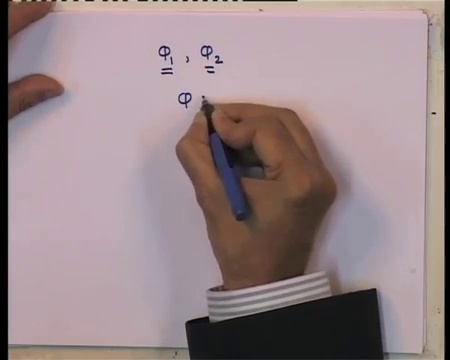 φ₁ , φ₂
φ